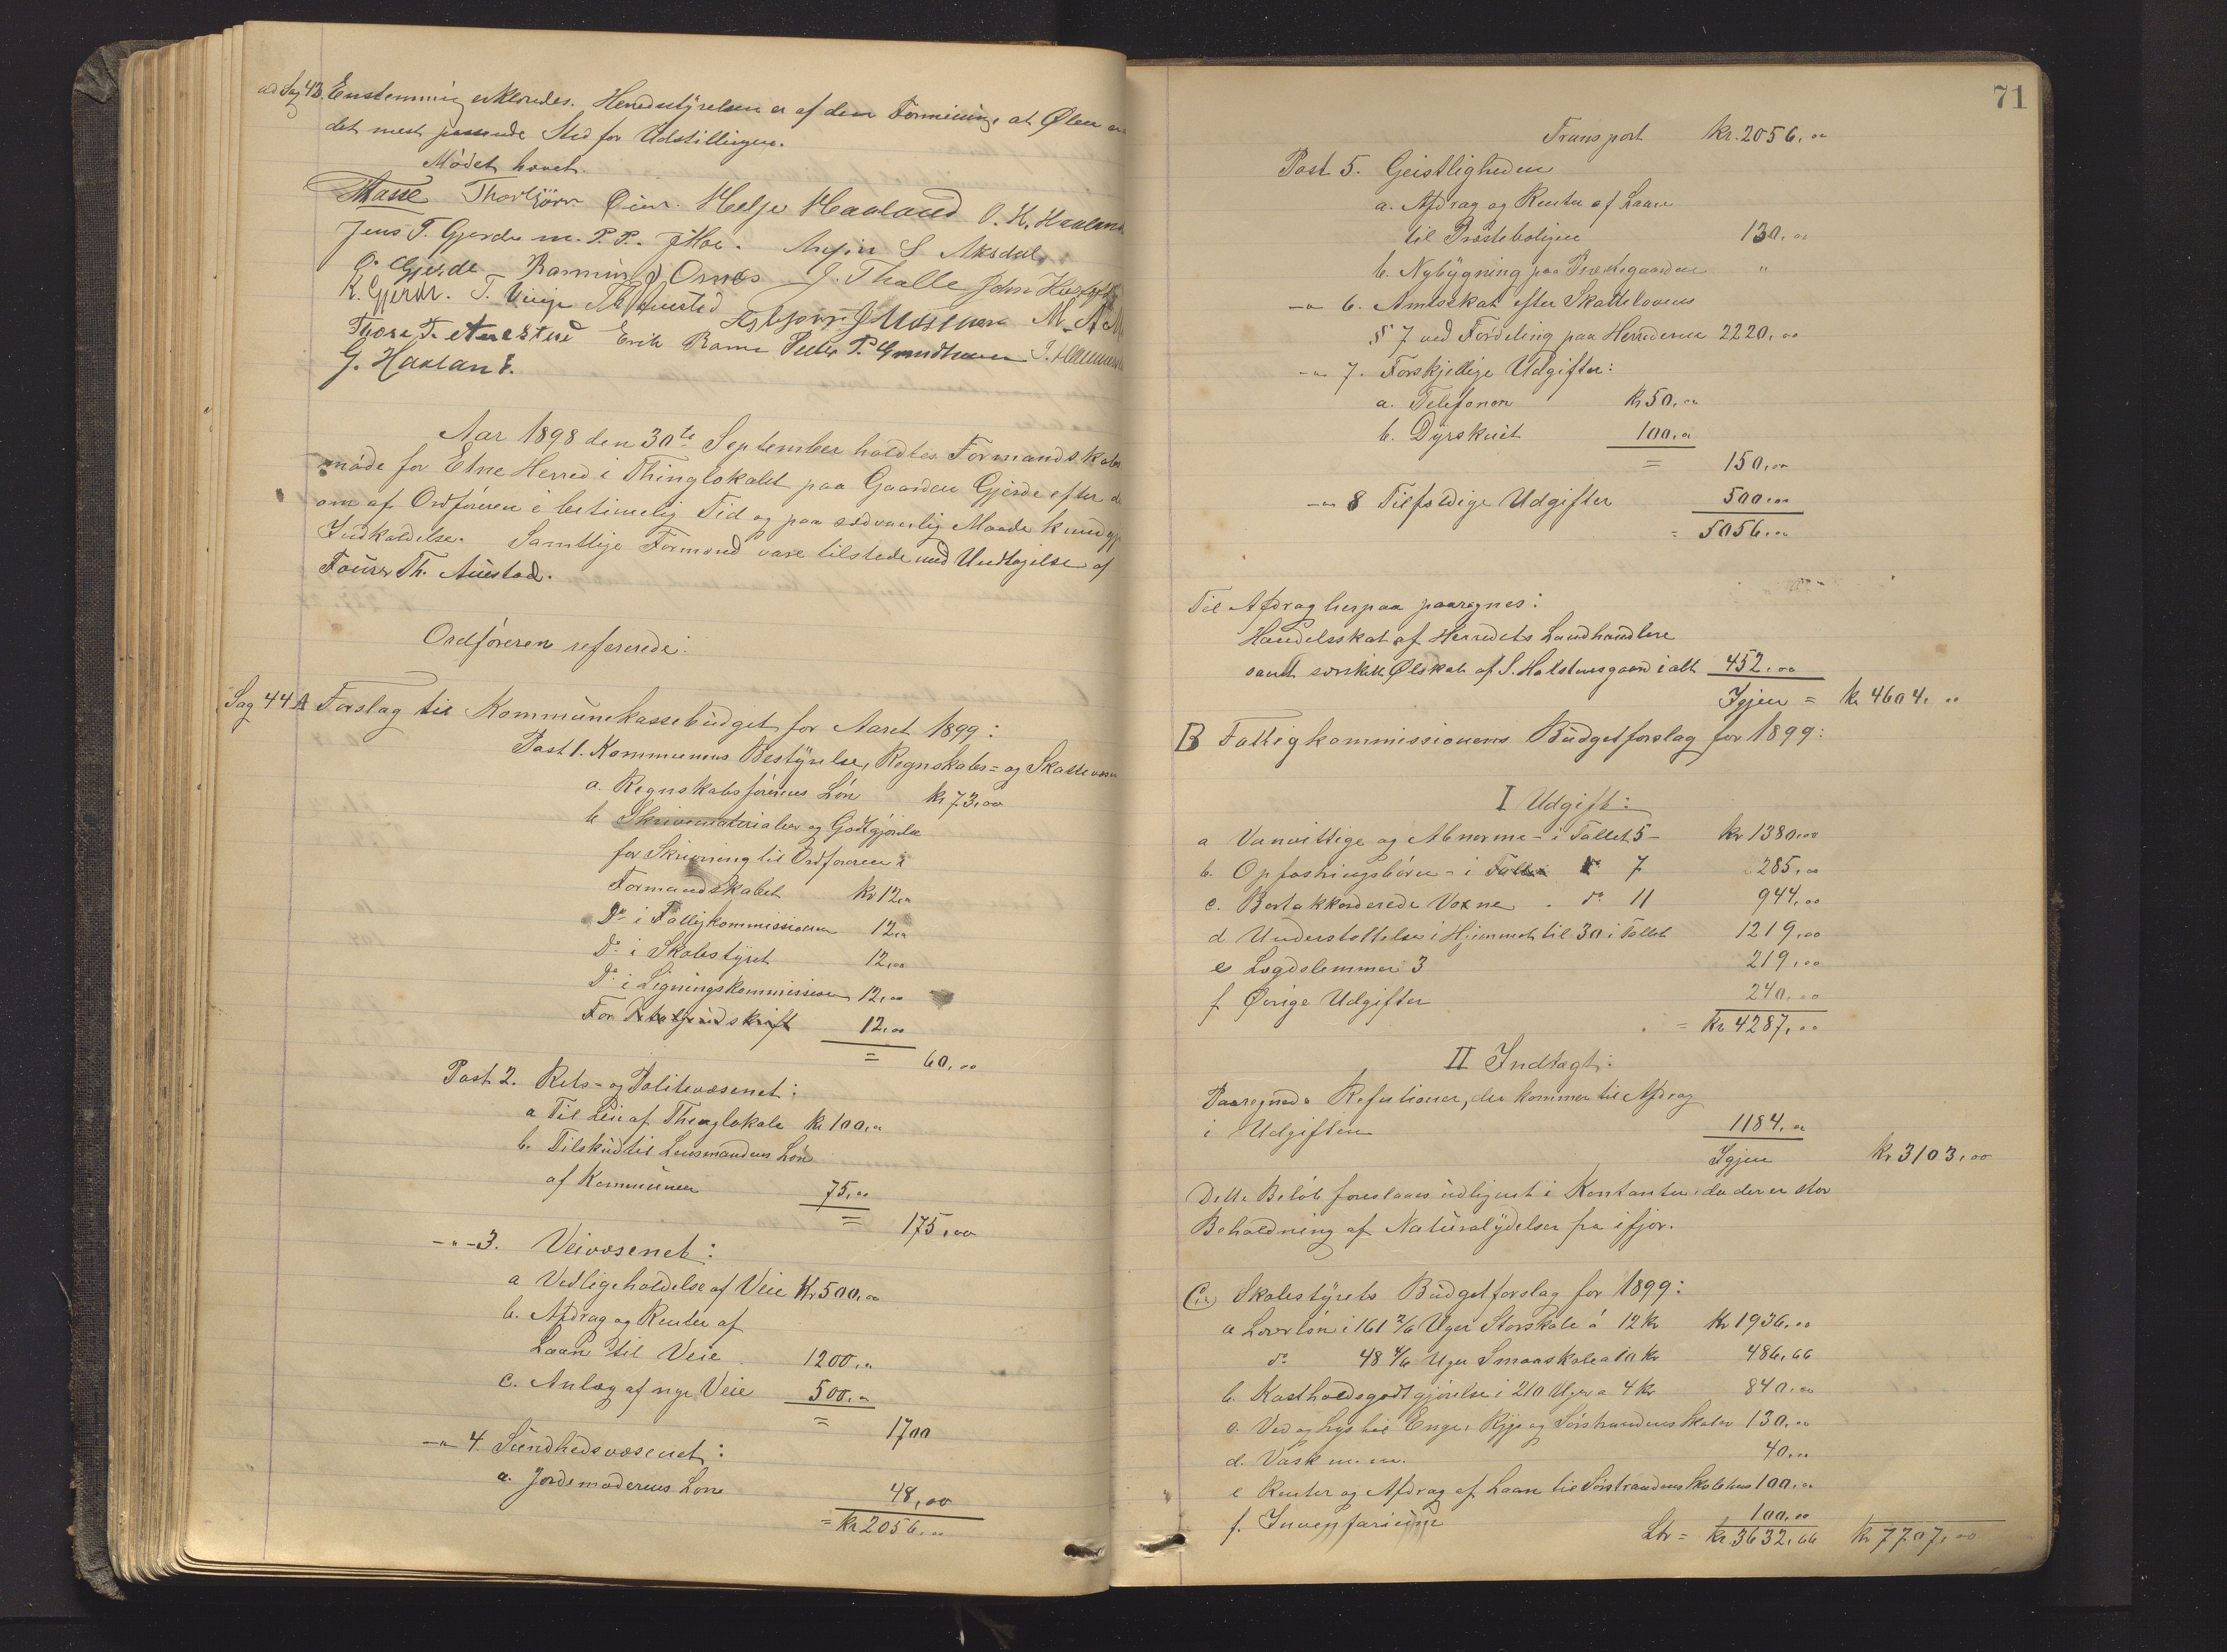 ad Sag 43. Enstemmig erklæredes. Herredsstyrelsen er af den Formening, at Ølen er
det mest passende Sted for Udstillingen.
Mødet hævet.
Thasse Thorbjørn Øien. Helje Haaland O. H. Haaland
Jens T. Gjerde m. P. P. J Moe. Anfin S Aksdal
O. Gjerde Rasmus J Ornes J. Thalle John
K. Gjerde. T. Vinje
Thore T. Austad Erik Ramn Peder P. Grindheim
G. Haaland.
Aar 1898 den 30te September holdtes Formandskabs
møde for Etne Herred i Thinglokalet paa Gaarden Gjerde efter den
om af Ordføreren i betimelig Tid og paa sædvanlig Maade kundgj
Indkaldelse. Samtlige Formænd vare tilstede med Undtagelse af
Thore Th. Austad.
Ordføreren refererede:
Sag 44 A Forslag til Kommunekassebudget for Aaret 1899:
Post 1. Kommunens Bestyrelse, Regnskabs= og Skattevæsen
a. Regnskabsførerens Løn kr 73,00
b Skrivematerialier og Godtgjørelse
for Skrivning til Ordføreren i
Formandskabet kr 12,00
Do i Fattigkommissionen 12,00
Do i Skolestyret 12,00
Do i Ligningskommissionen 12,00
For 12,00
= 60,00
Post 2. Rets- og Politivæsenet:
a Til Leie af Thinglokale kr 100,00
b. Tilskud til Lensmandens Løn
af Kommunen 75,00
= 175,00
-"-3. Veivæsenet:
a Vedligeholdelse af Veie Kr 500,00
b. Afdrag og Renter af
Laan til Veie 1200,00
c. Anlæg af nye Veie 500,00
= 1700
-"- 4. Sundhedsvæsenet:
a. Jordemoderens Løn 48,00
= kr 2056,00
71
Transport kr. 2056,00
Post 5. Geistligheden
a. Afdrag og Renter af Laan
til Præsteboligen 130,00
b. Nybygning paa Præstegaarden "
-"- 6. Amtsskat efter Skattelovens
§ 7 ved Fordeling paa Herrederne 2220,00
-"- 7. Forskjellige Udgifter:
a. Telefonen kr 50,00
b. Dyrskuet 100,00
= 150,00
-"- 8 Tilfældige Udgifter 500,00
= 5056,00
Til Afdrag herpaa paaregnes:
Handelsskat af Herredets Landhandlere
samt særskilt Ølskat af S. Halstensgaard ialt 452,00
Igjen = kr 4604,00
B Fattigkommissionens Budgetforslag for 1899:
I Udgift:
a Vanvittige og Abnorme - i Tallet 5 - kr 1380,00
b. Opfostringsbørn - i do 7 285,00
c. Bortakkorderede Voxne - do 11 944,00
d Understøttelse i Hjemmet til 30 i Tallet 1219,00
e Lægdslemmer 3 219,00
f Øvrige Udgifter 240,00
= kr 4287,00
II Indtægt:
Paaregnede Refusioner, der kommer til Afdrag
i Udgiften 1184,00
Igjen kr 3103,00
Dette Beløb foreslaaes udlignet i Kontanter, da der er stor
Beholdning af Naturalydelser fra ifjor.
C. Skolestyrets Budgetforslag for 1899:
a Lærerløn i 161 2/6 Uger Storskole á 12 kr kr 1936,00
do 48 4/6 Uger Smaaskole a 10 kr 486,66
b. Kostholdsgodtgjørelse i 210 Uger a 4 kr 840,00
c. Ved og Lys til Enge, Rygg og Sørstrandens Skoler 130,00
d. Vask m. m. 40,00
e Renter og Afdrag af Laan til Sørstrandens Skolehus 100,00
f. Inventarium 100,00
Ltr = kr. 3632,66 kr 7707,00